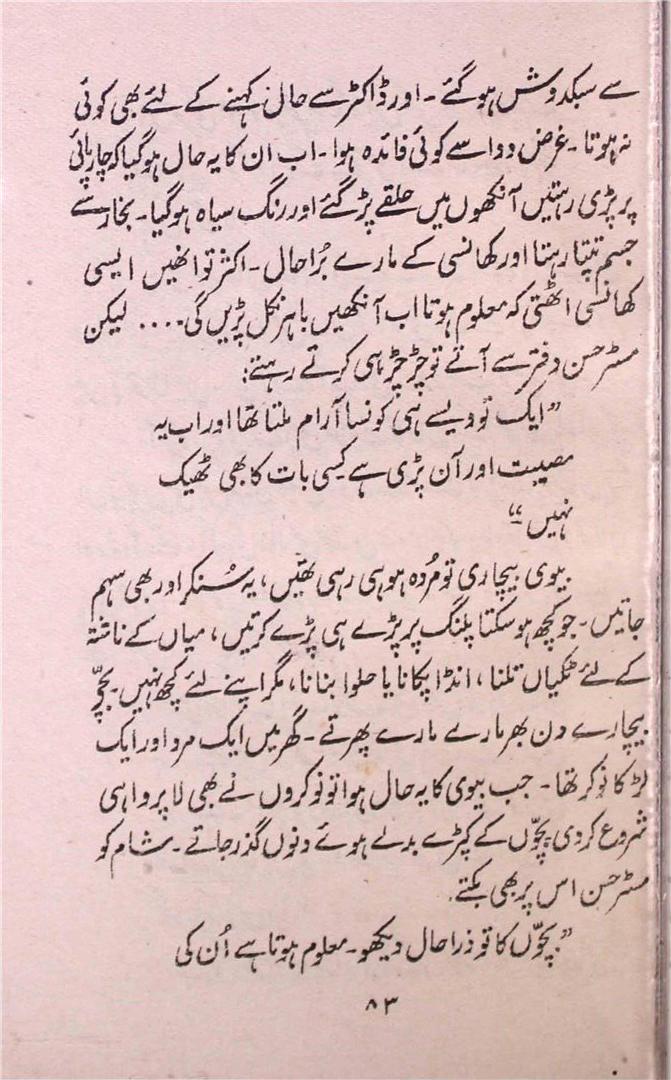 سے سبکدوش ہو گئے۔ اور ڈاکٹر سے حال کہنے کے لئے بھی کوئی
نہ ہوتا۔ غرض دوا سے کوئی فائدہ ہوا۔ اب ان کا یہ حال ہوگیا کہ چارپائی
پر پڑی رہتیں آنکھوں میں حلقے پڑ گئے اور رنگ سیاہ ہو گیا۔ بخار سے
جسم تپتا رہتا اور کھانسی کے مارے بُرا حال۔ اکثر تو انھیں ایسی
کھانسی اٹھتی کہ معلوم ہوتا اب آنکھیں باہر نکل پڑیں گی.... لیکن
مسٹر حسن دفتر سے آتے تو چڑچڑا ہی کرتے رہتے:
”ایک تو ویسے ہی کونسا آرام ملتا تھا اور اب یہ
مصیبت اور آن پڑی ہے کسی بات کا بھی ٹھیک
نہیں“
بیوی بیچاری تو مُردہ ہو ہی رہی تھیں، یہ سُنکر اور بھی سہم
جاتیں۔ جو کچھ ہو سکتا پلنگ پر پڑے ہی پڑے کرتیں، میاں کے ناشتہ
کے لئے ٹکیاں تلنا، انڈا پکانا یا حلوا بنانا، مگر اپنے لئے کچھ نہیں۔ بچّے
بیچارے دن بھر مارے مارے پھرتے۔ گھر میں ایک مرد اور ایک
لڑکا نوکر تھا۔ جب بیوی کا یہ حال ہوا تو نوکروں نے بھی لا پرواہی
شروع کردی بچّوں کے کپڑے بدلے ہوئے دنوں گذر جاتے۔ شام کو
مسٹر حسن اس پر بھی بکتے۔
”بچّوں کا تو ذرا حال دیکھو۔ معلوم ہوتا ہے اُن کی
۸۳